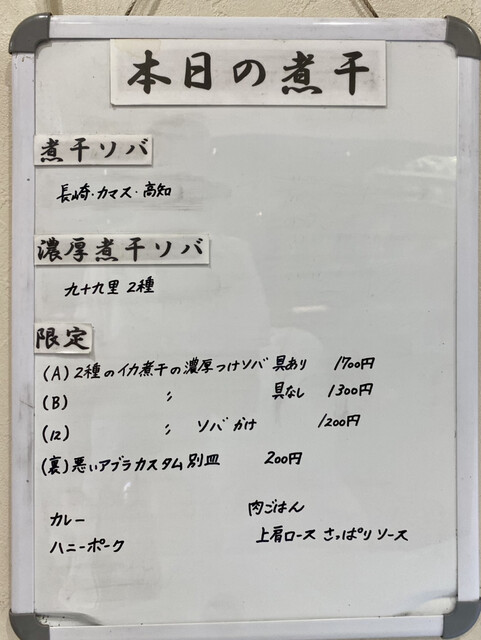 本日の煮干
煮干ソバ
長崎・カマス・高知
濃厚煮干ソバ
九十九里 2種
限定
(A) 2種のイカ煮干の濃厚つけソバ 具あり 1700円
(B) 〃 具なし 1300円
(12) 〃 ソバ かけ 1200円
(裏) 悪いアブラカスタム 別皿 200円
カレー 肉ごはん
ハニーポーク 上肩ロース さっぱりソース